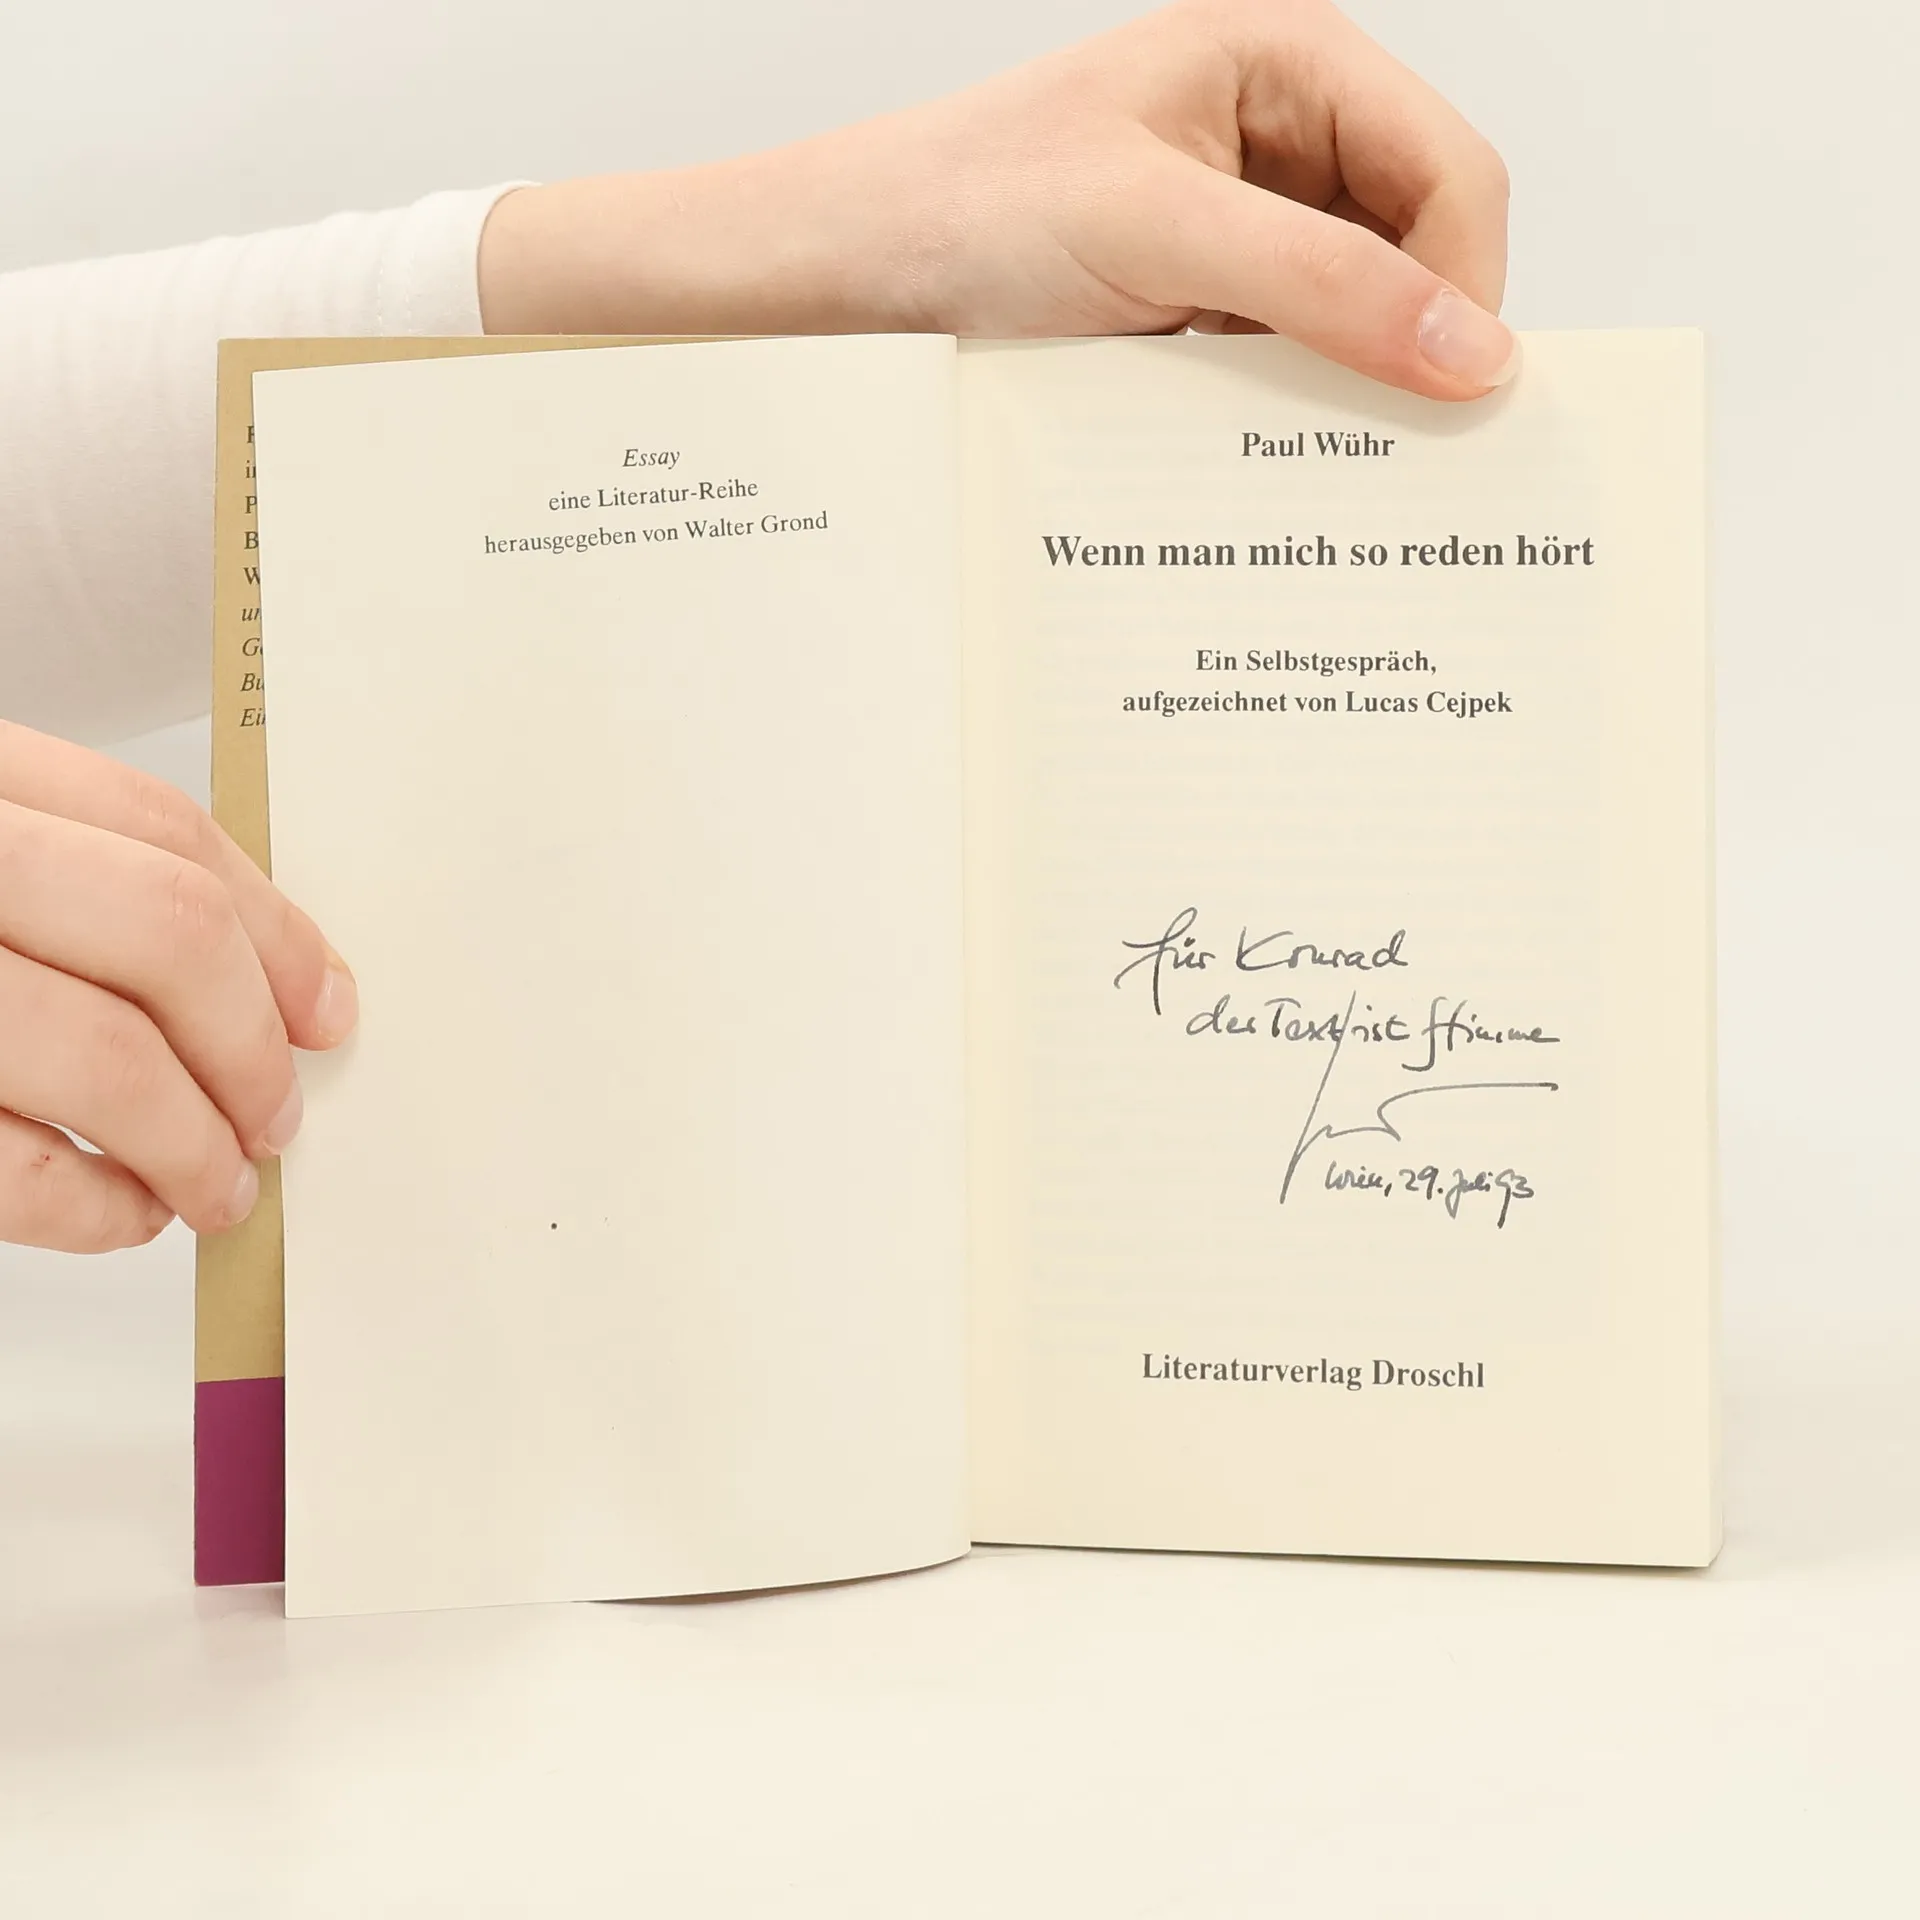 Essay
eine Literatur-Reihe
herausgegeben von Walter Grond
Paul Wühr
Wenn man mich so reden hört
Ein Selbstgespräch,
aufgezeichnet von Lucas Cejpek
für Konrad
der Text ist Stimme
Wien, 29. Juli 93
Literaturverlag Droschl